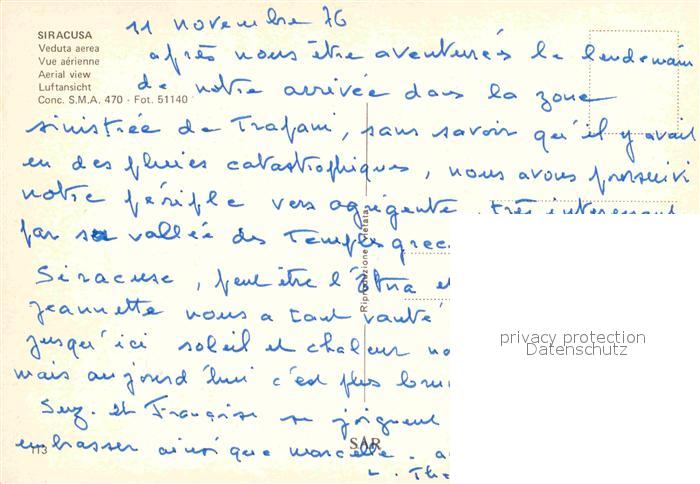 11 novembre 76
SIRACUSA
Veduta aerea
Vue aérienne
Aerial view
Luftansicht
Conc. S.M.A. 470 - Fot. 51140
après nous être aventurés le lendemain
de notre arrivée dans la zone
sinistrée de Trapani, sans savoir qu'il y avait
eu des pluies catastrophiques, nous avons poursuivi
notre périple vers agrigente, très intéressant
par sa vallée des Temples grec
Siracuse, peut être l'Etna et
Jeannette nous a tant vanté
jusqu'ici soleil et chaleur
mais aujourd'hui c'est plus
Suz. et Françoise se joignent
embrasser ainsi que marcelle. a
Riproduzione vietata
privacy protection
Datenschutz
113
SAR